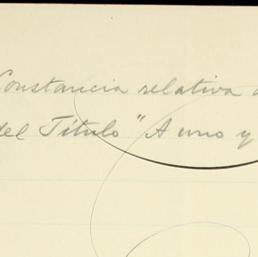 Constancia relativa a
del Título "A uno y